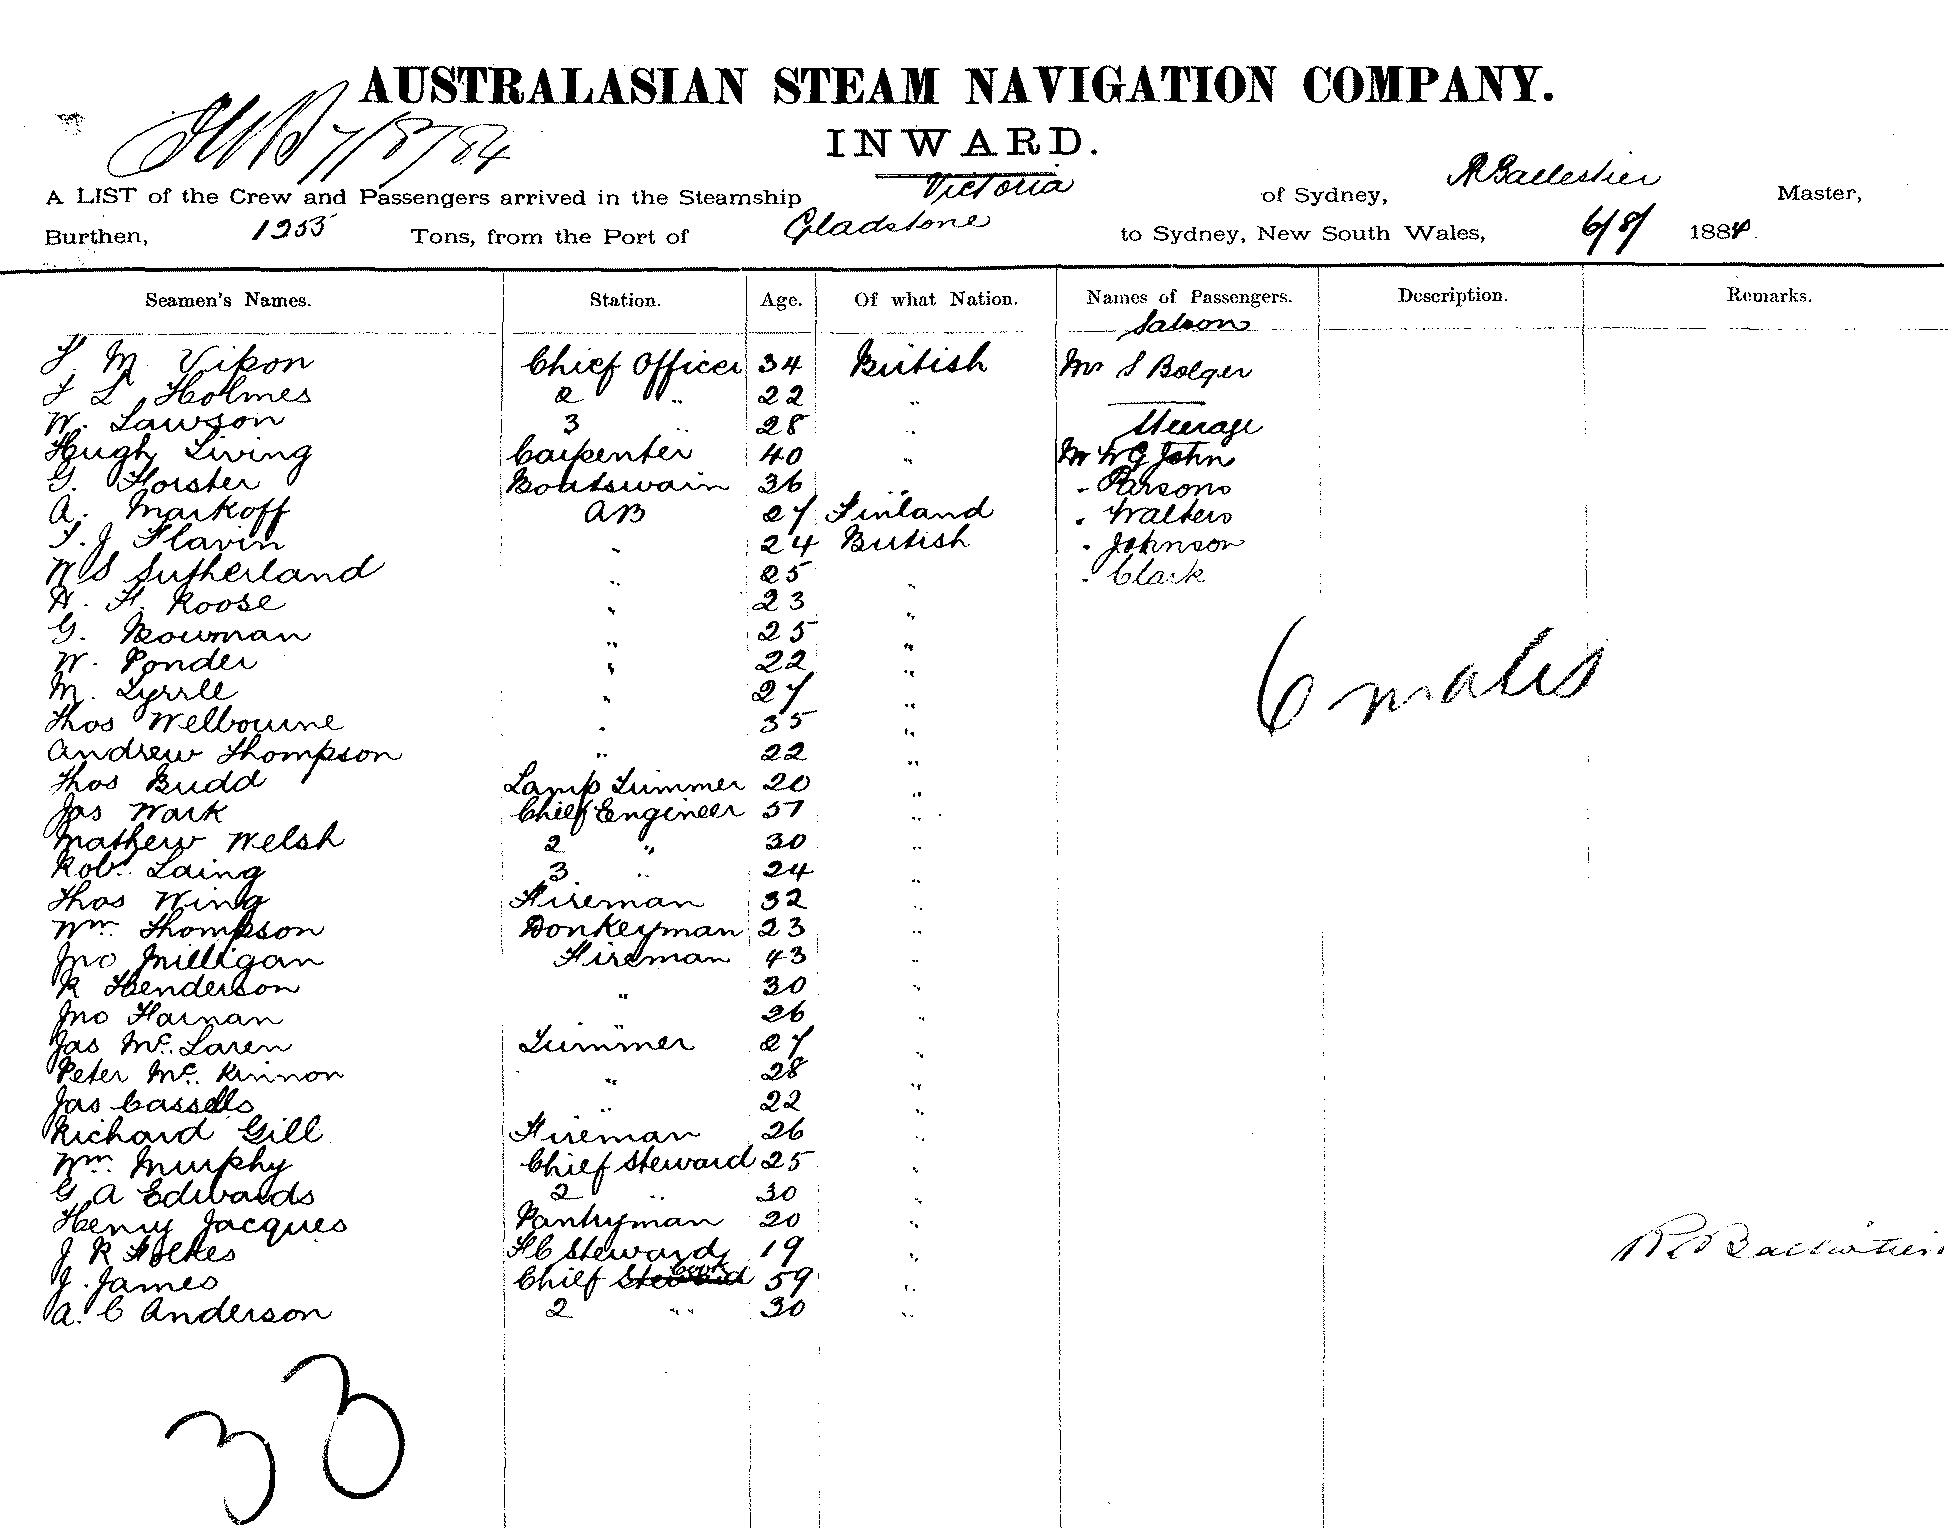 AUSTRALASIAN STEAM NAVIGATION COMPANY.
7/8/84
INWARD.
A LIST of the Crew and Passengers arrived in the Steamship Victoria of Sydney, Master,
Burthen, 1255 Tons, from the Port of Gladstone to Sydney, New South Wales, 6/8/ 1884.
Seamen's Names. Station. Age. Of what Nation. Names of Passengers. Description. Remarks.
Saloon
M. Chief Officer 34 British Mr S Bolger
L Holmes 2 " 22 "
W. Lawson 3 " 28 " Steerage
Hugh Living Carpenter 40 " Mr W G John
G. Forster Boatswain 36 " " Parsons
A. Markoff AB 27 Finland " Walters
T. J Flavin " 24 British " Johnson
W S Sutherland " 25 " " Clark
H. F. Roose " 23 "
G. Bowman " 25 "
W. Ponder " 22 "
M. Tyrrle " 27 "
6 males
Thos Welbourne " 35 "
Andrew Thompson " 22 "
Thos Budd Lamp Trimmer 20 "
Jas Wark Chief Engineer 57 "
Mathew Welsh 2 " 30 "
Robt. Laing 3 " 24 "
Thos Wing Fireman 32 "
Wm Thompson Donkeyman 23 "
Jno Milligan Fireman 43 "
R Henderson " 30 "
Jno Harnan " 26
Jas Mc. Laren Trimmer 27 "
Peter Mc. Kinnon " 28 "
Jas Cassells " 22 "
Richard Gill Fireman 26 "
Wm. Murphy Chief Steward 25 "
G A Edwards 2 " 30 "
Henry Jacques Pantryman 20 "
J R Folkes F C Steward 19 "
J. James Chief Steward Cook 59 "
A. C Anderson 2 " " 30 "
33